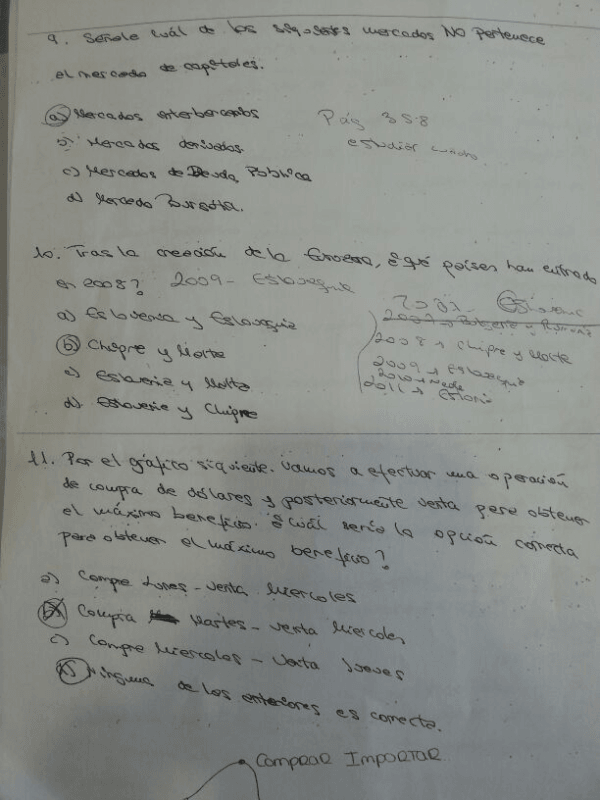 9. Señale cuál de los siguientes mercados NO Pertenece
al mercado de capitales.
a) Mercados interbancarios
Pág 358
b) Mercados derivados
estudiar
c) Mercados de Deuda Pública
d) Mercado Bursátil.
10. Tras la creación de la Eurozona, ¿qué países han entrado
en 2008? 2009 - Eslovaquia
a) Eslovenia y Eslovaquia
2007 - Eslovenia
b) Chipre y Malta
2008 → Chipre y Malta
2009 → Eslovaquia
c) Eslovenia y Malta
2011 → Estonia
d) Eslovenia y Chipre
11. Por el gráfico siguiente. Vamos a efectuar una operación
de compra de dólares y posteriormente venta para obtener
el máximo beneficio. ¿Cuál sería la opción correcta
para obtener el máximo beneficio?
a) Compra Lunes - venta Miercoles
b) Compra Martes - venta Miercoles
c) Compra Miercoles - Venta Jueves
d) Ninguna de las anteriores es correcta.
COMPRAR IMPORTAR